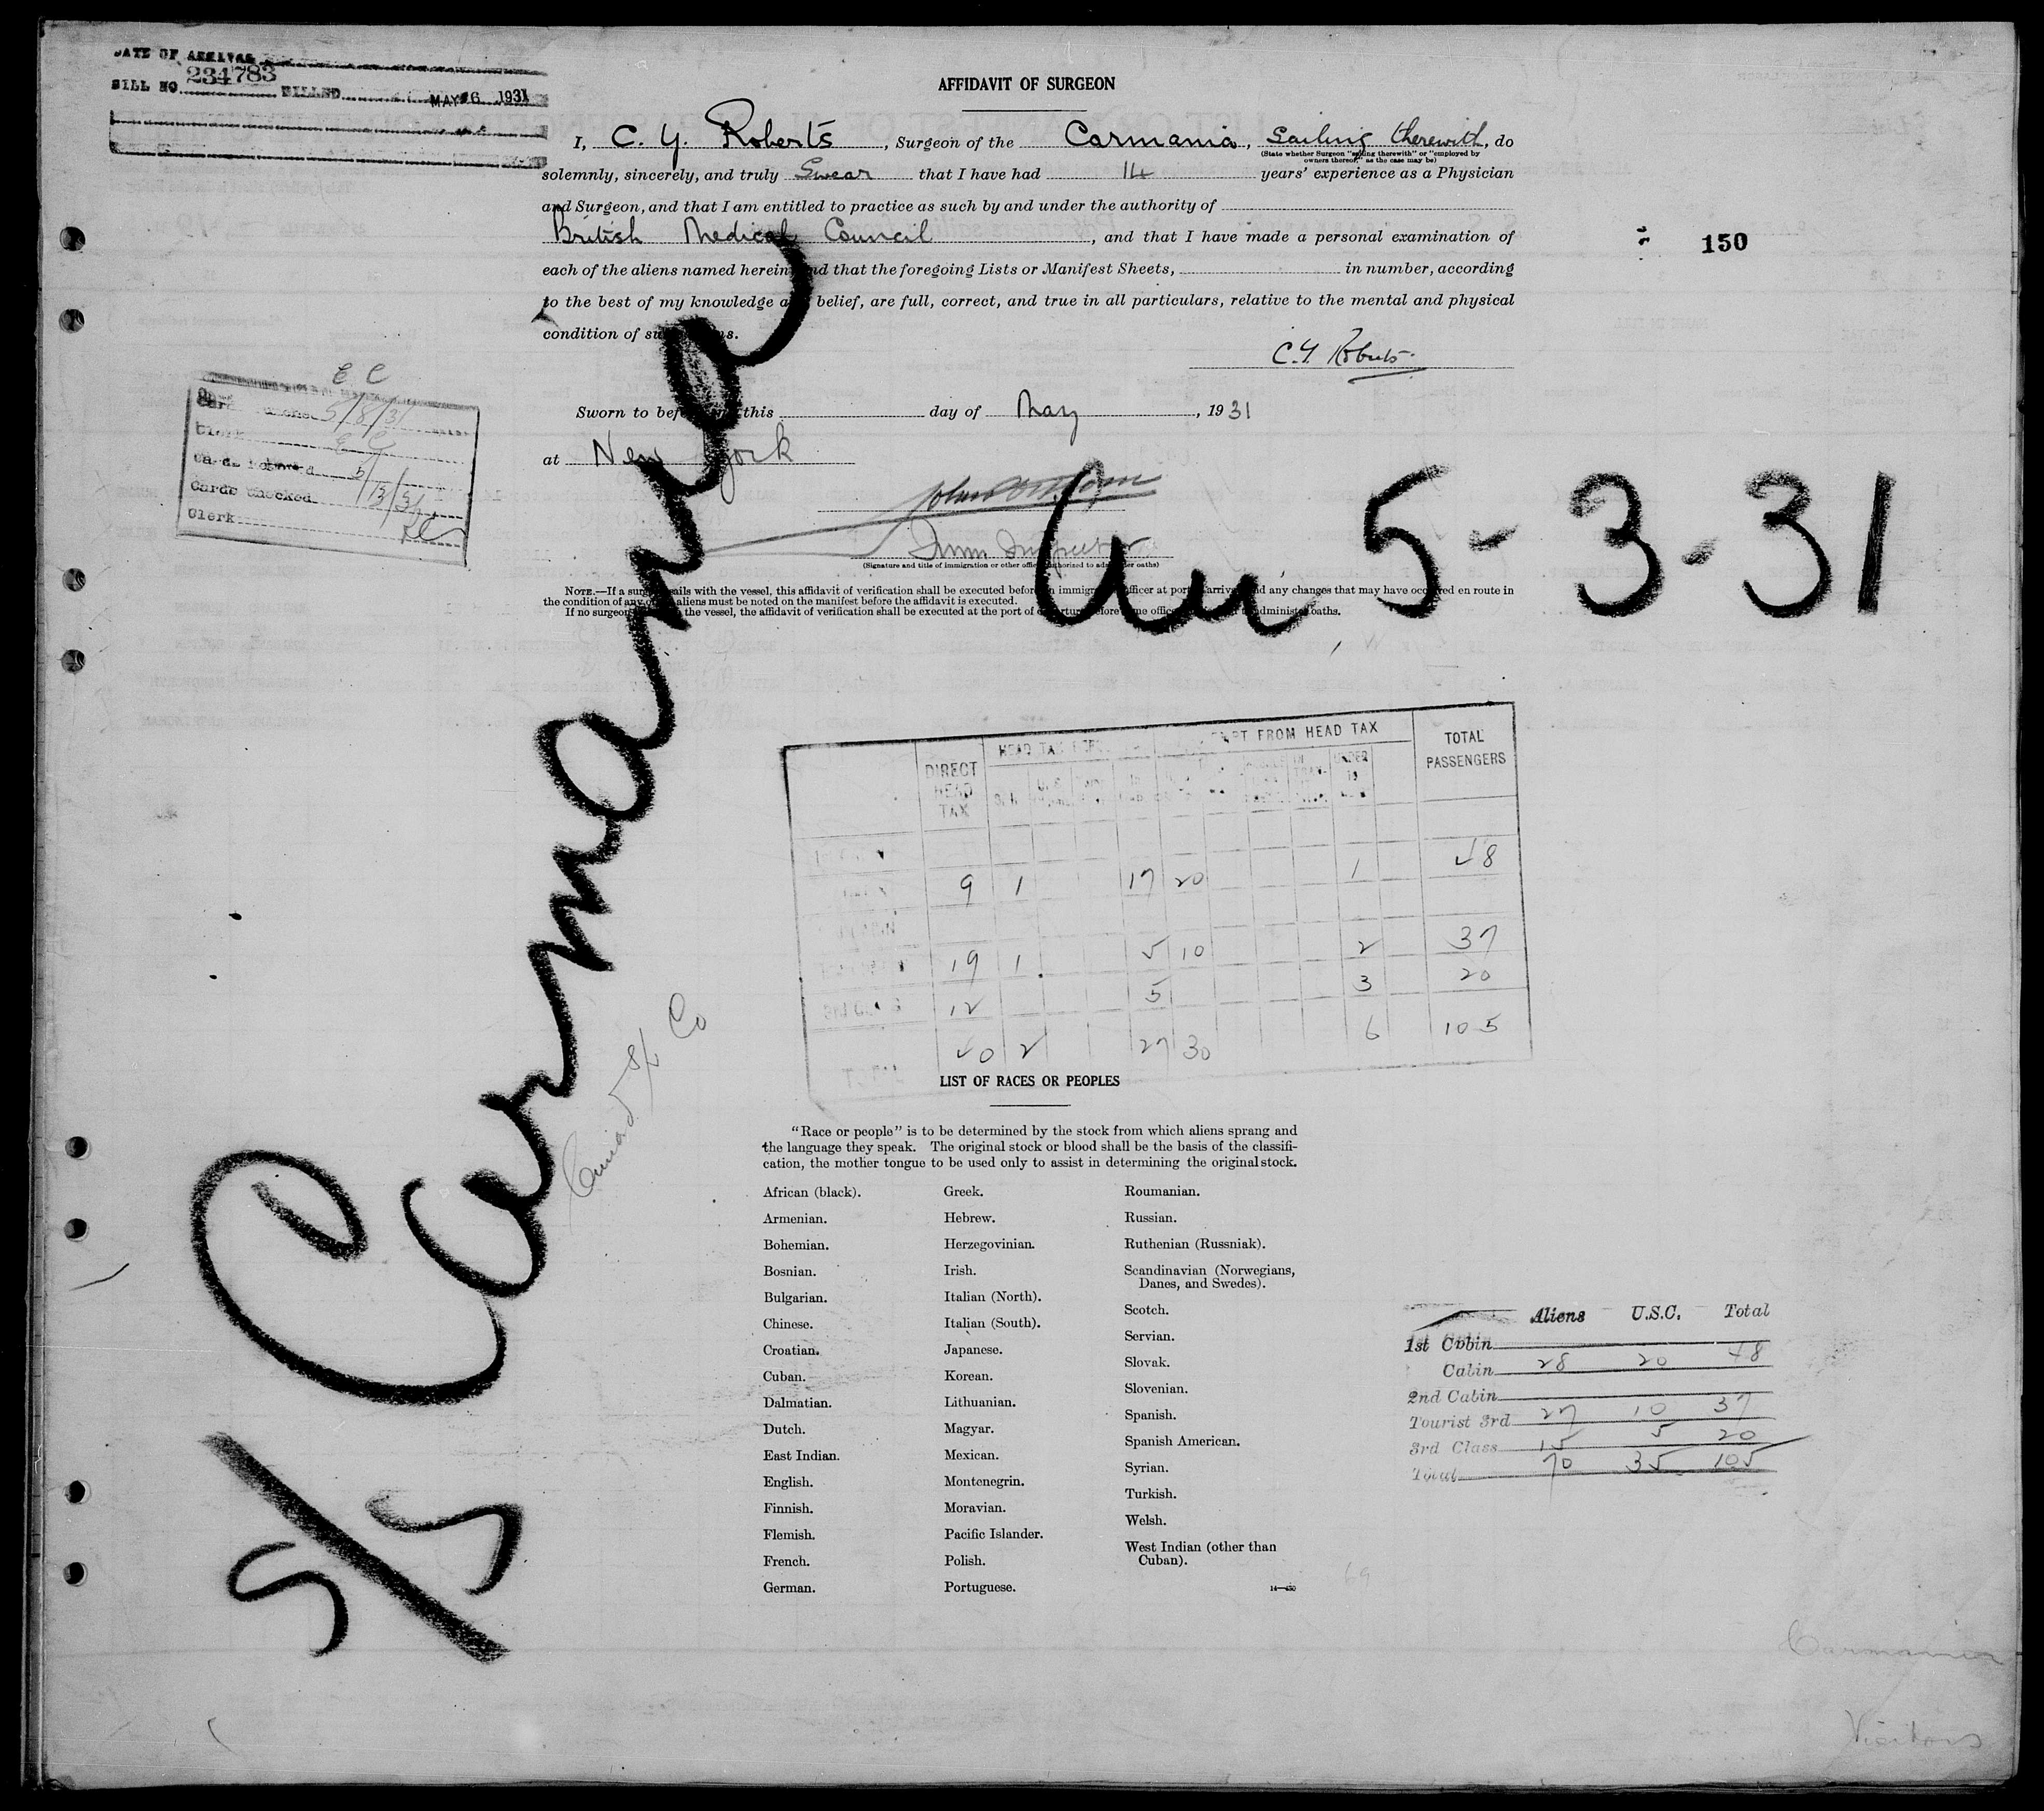 DATE OF ARRIVAL
BILL NO. 234783 BILLED MAY 6 1931
AFFIDAVIT OF SURGEON
I, C. Y. Roberts, Surgeon of the Carmania, Sailing therewith, do
(State whether Surgeon "sailing therewith" or "employed by
owners thereof," as the case may be)
solemnly, sincerely, and truly Swear that I have had 14 years' experience as a Physician
and Surgeon, and that I am entitled to practice as such by and under the authority of
British Medical Council, and that I have made a personal examination of
150
each of the aliens named herein and that the foregoing Lists or Manifest Sheets, in number, according
to the best of my knowledge and belief, are full, correct, and true in all particulars, relative to the mental and physical
condition of such aliens.
C. Y. Roberts.
Sworn to before me this day of May, 1931
at New York
Imm Inspector
(Signature and title of immigration or other officer authorized to administer oaths)
E C
5/8/31
Clerk E C
5/13/31
Cards Checked
Clerk
NOTE.—If a surgeon sails with the vessel, this affidavit of verification shall be executed before an immigration officer at port of arrival and any changes that may have occurred en route in
the condition of any of the aliens must be noted on the manifest before the affidavit is executed.
If no surgeon sails with the vessel, the affidavit of verification shall be executed at the port of departure before some officer authorized to administer oaths.
Arr 5-3-31
S/S Carmania
Cunard S/S Co
DIRECT HEAD TAX HEAD TAX EXEMPT FROM HEAD TAX TOTAL PASSENGERS
UNDER 16
9 1 17 20 1 48
19 1 5 10 2 37
12 5 3 20
TOTAL 40 2 27 30 6 105
LIST OF RACES OR PEOPLES
"Race or people" is to be determined by the stock from which aliens sprang and
the language they speak. The original stock or blood shall be the basis of the classifi-
cation, the mother tongue to be used only to assist in determining the original stock.
African (black).
Armenian.
Bohemian.
Bosnian.
Bulgarian.
Chinese.
Croatian.
Cuban.
Dalmatian.
Dutch.
East Indian.
English.
Finnish.
Flemish.
French.
German.
Greek.
Hebrew.
Herzegovinian.
Irish.
Italian (North).
Italian (South).
Japanese.
Korean.
Lithuanian.
Magyar.
Mexican.
Montenegrin.
Moravian.
Pacific Islander.
Polish.
Portuguese.
Roumanian.
Russian.
Ruthenian (Russniak).
Scandinavian (Norwegians,
Danes, and Swedes).
Scotch.
Servian.
Slovak.
Slovenian.
Spanish.
Spanish American.
Syrian.
Turkish.
Welsh.
West Indian (other than
Cuban).
Aliens U.S.C. Total
1st Cabin
Cabin 28 20 48
2nd Cabin
Tourist 3rd 27 10 37
3rd Class 15 5 20
Total 70 35 105
69
Carmania
Visitors